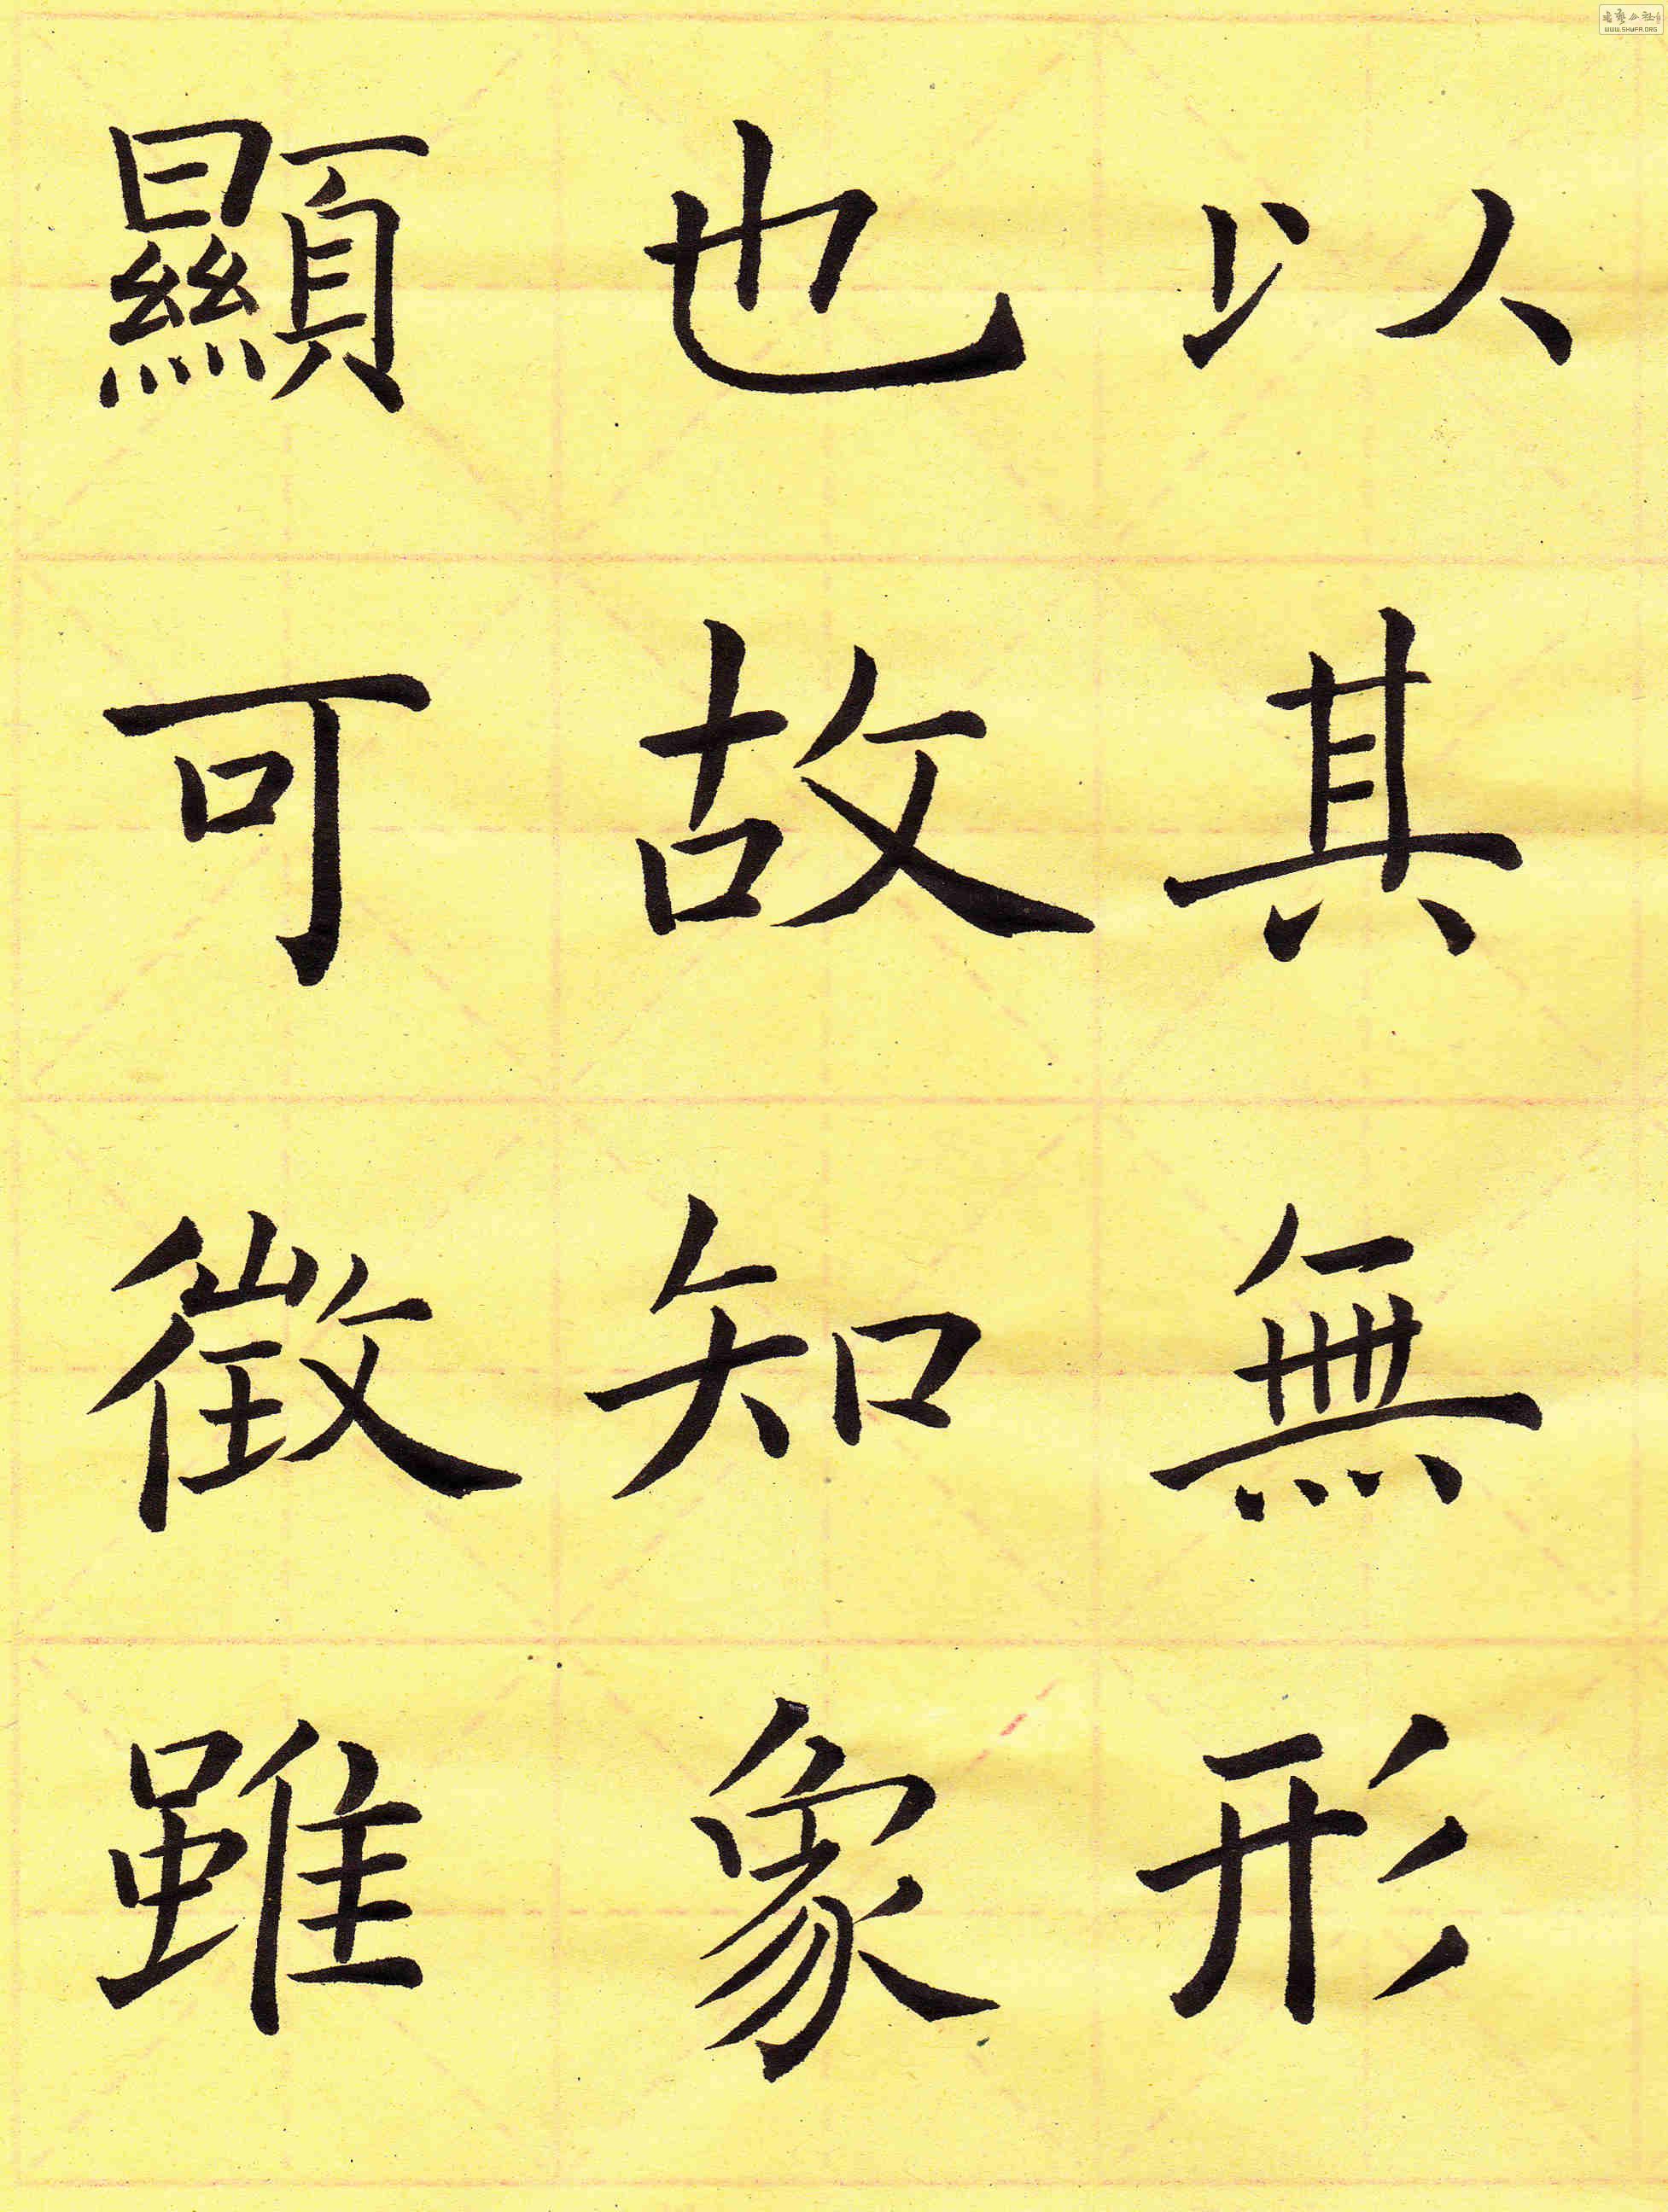 以其無形
也故知象
顯可徵雖
WWW.SHUFA.ORG